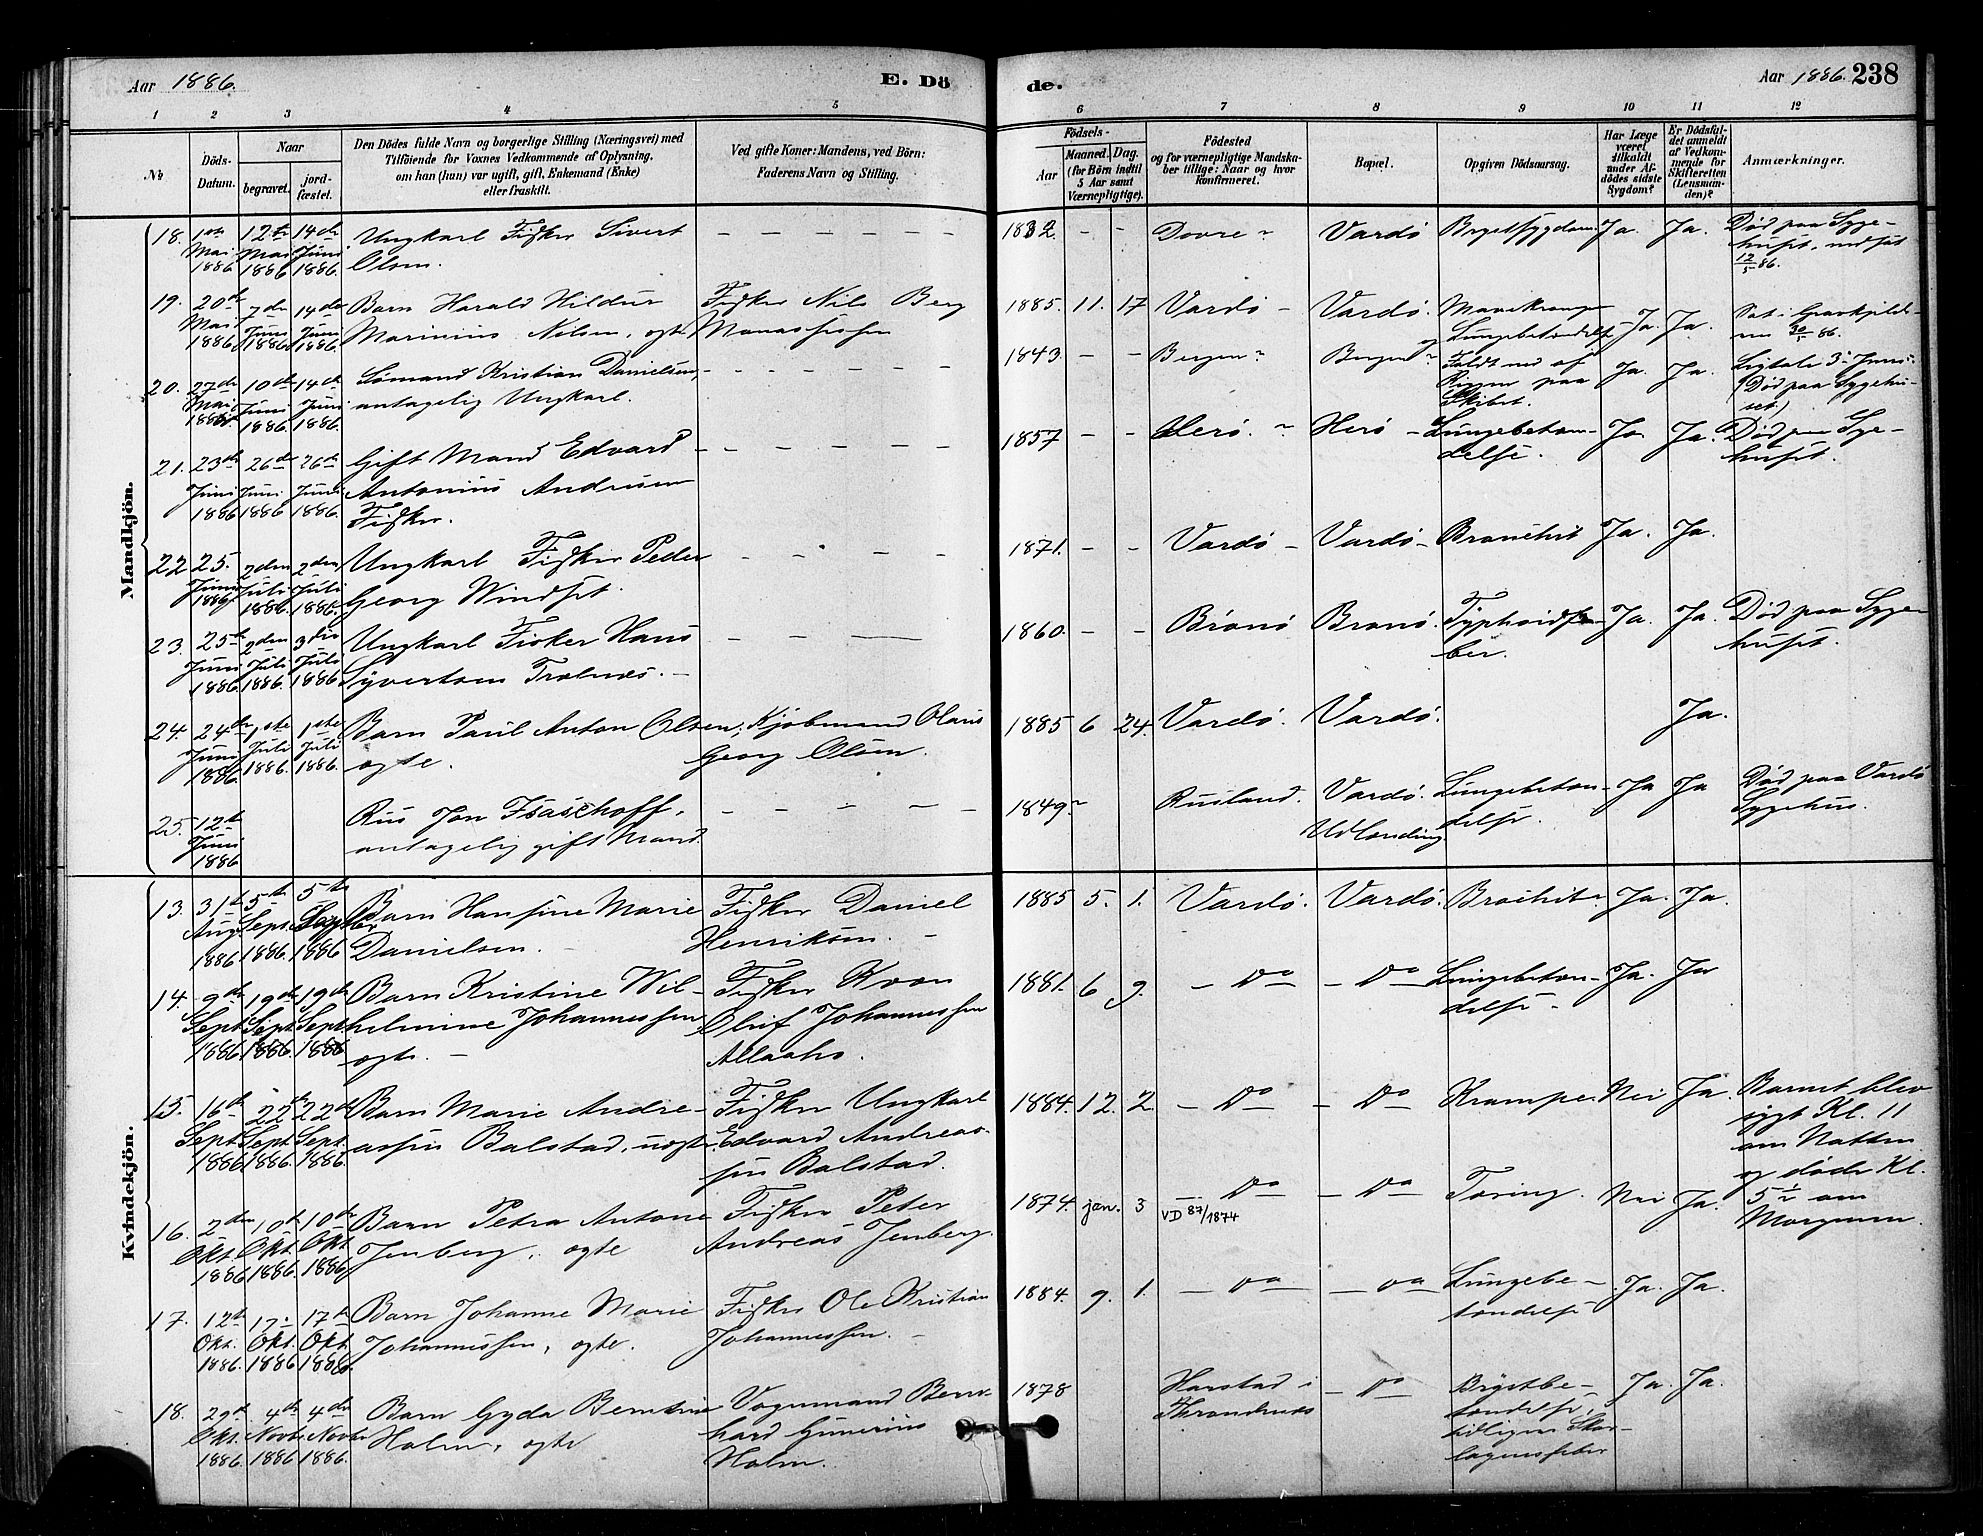 Aar 1886.
E. Dö
de.
Aar 1886. 238
1 2 3 4 5
6 7 8 9 10 11 12
No
Döds-
Datum.
Naar
begravet.
jord-
fæstet.
Den Dödes fulde Navn og borgerlige Stilling (Næringsvei) med
Tilföiende for Voxnes Vedkommende af Oplysning,
om han (hun) var ugift, gift, Enkemand (Enke)
eller fraskilt.
Ved gifte Koner: Mandens, ved Börn:
Faderens Navn og Stilling.
Födsels-
Aar
Maaned. Dag.
(for Börn indtil
5 Aar samt
Værnepligtige).
Födested
og for værnepligtige Mandska-
ber tillige: Naar og hvor
konfirmeret.
Bopæl.
Opgiven Dödsaarsag.
Har Læge
været
tilkaldt
under Af-
dödes sidste
Sygdom?
Er Dödsfal-
det anmeldt
af Vedkom-
mende for
Skifteretten
(Lensman-
den)?
Anmærkninger.
Mandkjön.
18. 1ste Mai 1886 12te Mai 1886 14de Juni 1886. Ungkarl Fisker Sivert
Olsen.
1832 - - Dovre Vardö Brystsygdom Ja. Ja. Död paa Syge-
huset, nedsat
12/5 86.
19. 20de Mai 1886 7de Juni 1886. 14de Juni 1886. Barn Harald Hildur
Marinius Nilsen, ogte
Fisker Nils Berg
Manassesen
1885. 11. 17 Vardö - Vardö. Mavekrampe
og Lungebetændelse Ja. Ja. Sat i Gravkjelde-
ren 30/5 86.
20. 27de Mai 1886. 10de Juni 1886. 14de Juni 1886. Sömand Kristian Danielsen,
antagelig Ungkarl.
1843. - - Bergen Bergen Faldt ned af
Riggen paa
Skibet. Ja. Ja. Ligtale 3 Juni
(Död paa Sygehu-
set)
21. 23de Juni 1886 26de Juni 1886 26de Juni 1886. Gift Mand Edvard
Antonius Andresen
Fisker.
1857 - - Herö. Herö - Lungebetæn-
delse. Ja Ja. Död paa Syge-
huset.
22 25. Juni 1886. 2den Juli 1886. 2den Juli 1886. Ungkarl Fisker Peder
Georg Windset.
1871. - - Vardö - Vardö - Bronchit Ja. Ja.
23. 25de Juni 1886 2den Juli 1886. 3die Juli 1886 Ungkarl Fisker Hans
Syvertsen Trælnæs. -
1860. - - Brönö Brönö. Typhoidfe-
ber. Ja. Ja. Död paa Syge-
huset.
24. 24de Juni 1886. 1ste Juli 1886. 1ste Juli 1886. Barn Paul Anton Olsen,
ogte.
Kjöbmand Olaus
Georg Olsen.
1885 6 24. Vardö. Vardö. Ja.
25. 12te Juni 1886 Rus Jon Isaschoff,
antagelig gift Mand.
1849 Rusland. Vardö.
Udlænding Lungebetæn-
delse. Ja Ja Död paa Vardö
Sygehus.
Kvindekjön.
13. 31te Aug. 1886 5te Sept. 1886. 5te Septbr. 1886 Barn Hansine Marie
Danielsen. -
Fisker Daniel
Henriksen. -
1885 5. 1. Vardö. Vardö. Brochit Ja. Ja.
14. 9de Sept. 1886. 19de Sept. 1886. 19de Sept. 1886 Barn Kristine Wil-
helmine Johannessen,
ogte. -
Fisker Kvon
Oluf Johannessen
1881. 6 9. - Do - Do Lungebetæn-
delse - Ja. Ja
15. 16de Sept. 1886 22de Sept. 1886 22de Sept. 1886. Barn Marie Andre-
asen Balstad, uogte.
Fisker Ungkarl
Edvard Andreas-
sen Balstad.
1884. 12. 2. - Do - Do Krampe. Nei Ja. Barnet blev
sygt Kl. 11
om Natten
og döde Kl.
5 om
Morgenen.
16. 2den Okt. 1886 10de Okt. 1886. 10de Okt 1886 Barn Petra Antone
Jenberg, ogte
Fisker Peter
Andreas Jenberg.
1874. jan. 3 - Do
VD 87/1874 - Do Tæring. Nei Ja.
17. 12te Okt. 1886. 17. Okt. 1886 17de Okt. 1886. Barn Johanne Marie
Johannessen, ogte.
Fisker Ole Kristian
Johannessen. -
1884. 9. 1. - Do - Do Lungebe-
tændelse Ja. Ja.
18. 29de Okt. 1886. 4de Novbr. 1886 4de Novbr. 1886. Barn Gyda Berntine
Holm, ogte
Vognmand Bern-
hard Gunerius
Holm.
1878 Harstad i
Throndenæs - Do Brystbe-
tændelse,
tidligere Skar-
lagensfeber Ja. Ja.